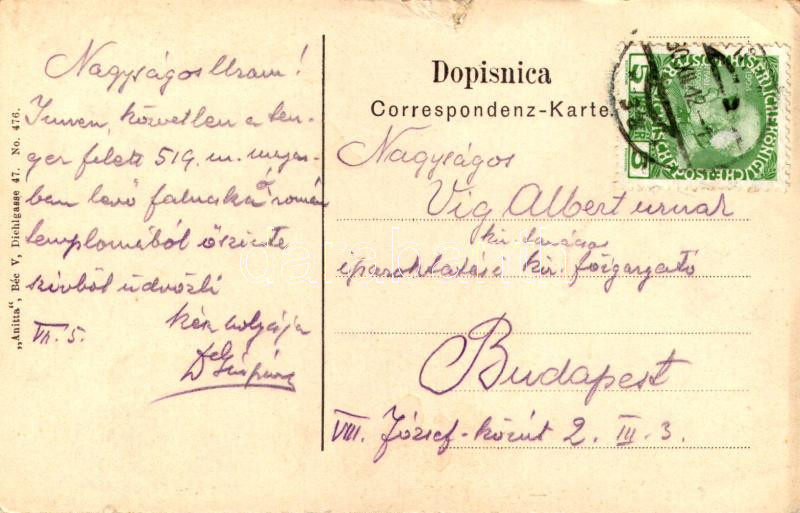 Nagyságos Uram!
Innen, közvetlen a ten-
ger felett 519 m. magas-
ban levő falucska ó román
templomából őszinte
szívből üdvözli
kész szolgája
VII. 5.
„Anitta“, Béc V, Diehlgasse 47. No. 476.
Dopisnica
Correspondenz-Karte.
Nagyságos
Vig Albert urnak
kir. tanácsos
iparoktatási kir. főigazgató
Budapest
VIII. József-körút 2. III. 3.
5
5